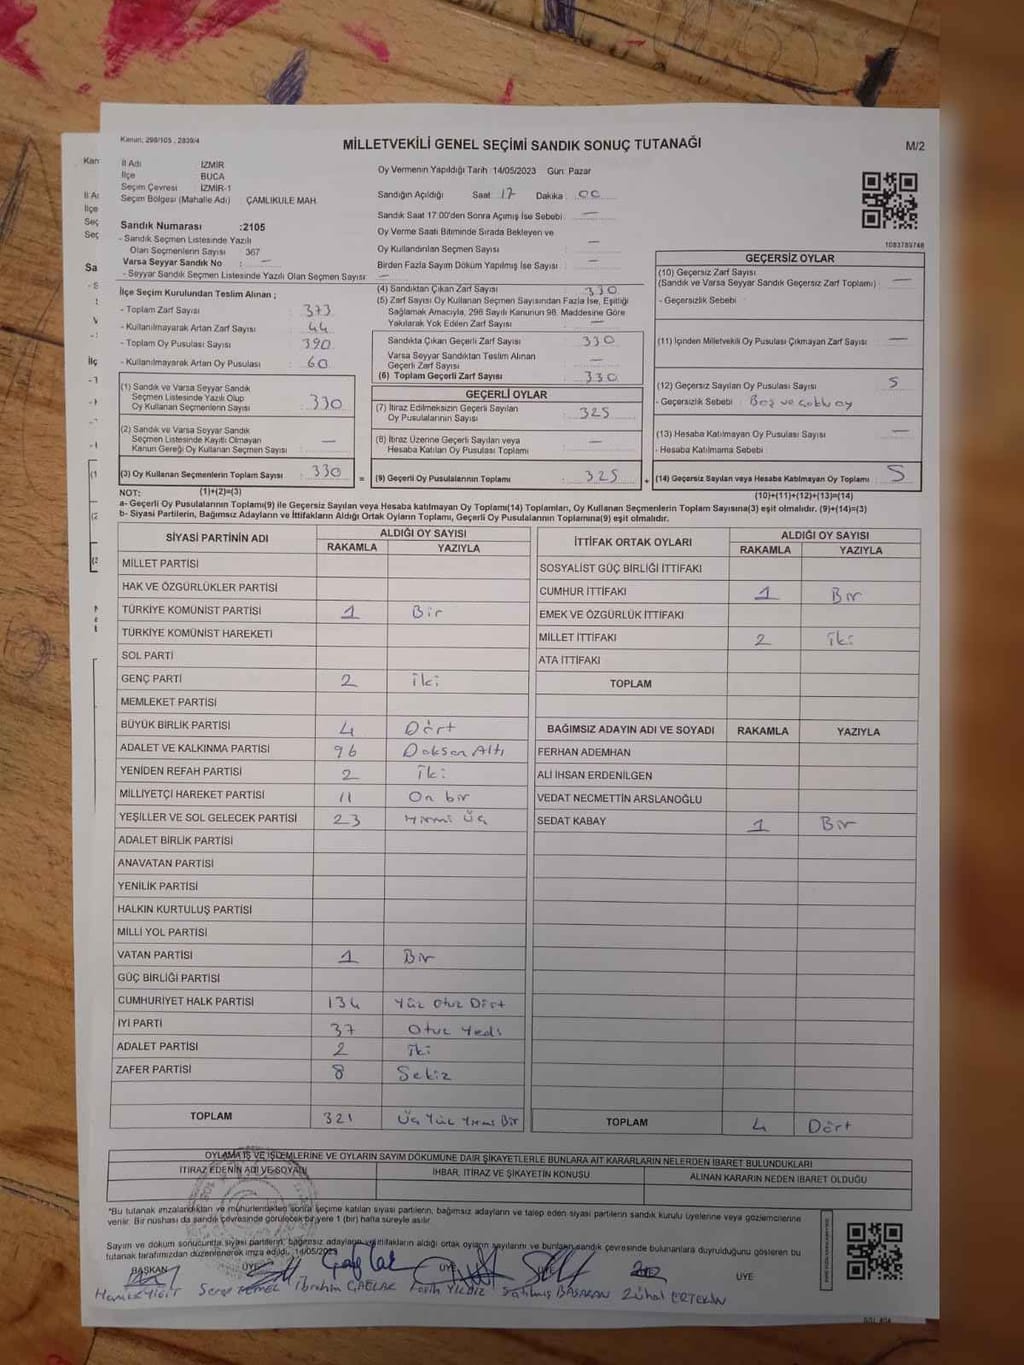 Kanun: 298/105 , 2839/4
MİLLETVEKİLİ GENEL SEÇİMİ SANDIK SONUÇ TUTANAĞI
M/2
İl Adı İZMİR
İlçe BUCA
Seçim Çevresi İZMİR-1
Seçim Bölgesi (Mahalle Adı) : ÇAMLIKULE MAH.
Oy Vermenin Yapıldığı Tarih :14/05/2023 Gün: Pazar
Sandığın Açıldığı Saat: 17 Dakika : 00
Sandık Saat 17.00'den Sonra Açılmış İse Sebebi : —
Oy Verme Saati Bitiminde Sırada Bekleyen ve
Oy Kullandırılan Seçmen Sayısı : —
Birden Fazla Sayım Döküm Yapılmış İse Sayısı : —
1083785748
Sandık Numarası :2105
- Sandık Seçmen Listesinde Yazılı
Olan Seçmenlerin Sayısı : 367
Varsa Seyyar Sandık No : —
- Seyyar Sandık Seçmen Listesinde Yazılı Olan Seçmen Sayısı: —
İlçe Seçim Kurulundan Teslim Alınan ;
- Toplam Zarf Sayısı : 373
- Kullanılmayarak Artan Zarf Sayısı : 44
- Toplam Oy Pusulası Sayısı : 390
- Kullanılmayarak Artan Oy Pusulası : 60
(1) Sandık ve Varsa Seyyar Sandık
Seçmen Listesinde Yazılı Olup
Oy Kullanan Seçmenlerin Sayısı : 330
(2) Sandık ve Varsa Seyyar Sandık
Seçmen Listesinde Kayıtlı Olmayan
Kanun Gereği Oy Kullanan Seçmen Sayısı : —
(3) Oy Kullanan Seçmenlerin Toplam Sayısı : 330
(1)+(2)=(3)
(4) Sandıktan Çıkan Zarf Sayısı : 330
(5) Zarf Sayısı Oy Kullanan Seçmen Sayısından Fazla İse, Eşitliği
Sağlamak Amacıyla, 298 Sayılı Kanunun 98. Maddesine Göre
Yakılarak Yok Edilen Zarf Sayısı : —
Sandıkta Çıkan Geçerli Zarf Sayısı : 330
Varsa Seyyar Sandıktan Teslim Alınan
Geçerli Zarf Sayısı : —
(6) Toplam Geçerli Zarf Sayısı : 330
GEÇERLİ OYLAR
(7) İtiraz Edilmeksizin Geçerli Sayılan
Oy Pusulalarının Sayısı : 325
(8) İtiraz Üzerine Geçerli Sayılan veya
Hesaba Katılan Oy Pusulası Toplamı : —
= (9) Geçerli Oy Pusulalarının Toplamı : 325
GEÇERSİZ OYLAR
(10) Geçersiz Zarf Sayısı
(Sandık ve Varsa Seyyar Sandık Geçersiz Zarf Toplamı) : —
- Geçersizlik Sebebi :
(11) İçinden Milletvekili Oy Pusulası Çıkmayan Zarf Sayısı : —
(12) Geçersiz Sayılan Oy Pusulası Sayısı : 5
- Geçersizlik Sebebi : Boş ve çoklu oy
(13) Hesaba Katılmayan Oy Pusulası Sayısı : —
- Hesaba Katılmama Sebebi :
+ (14) Geçersiz Sayılan veya Hesaba Katılmayan Oy Toplamı : 5
(10)+(11)+(12)+(13)=(14)
NOT:
a- Geçerli Oy Pusulalarının Toplamı(9) ile Geçersiz Sayılan veya Hesaba katılmayan Oy Toplamı(14) Toplamları, Oy Kullanan Seçmenlerin Toplam Sayısına(3) eşit olmalıdır. (9)+(14)=(3)
b- Siyasi Partilerin, Bağımsız Adayların ve İttifakların Aldığı Ortak Oyların Toplamı, Geçerli Oy Pusulalarının Toplamına(9) eşit olmalıdır.
SİYASİ PARTİNİN ADI ALDIĞI OY SAYISI
RAKAMLA YAZIYLA
MİLLET PARTİSİ
HAK VE ÖZGÜRLÜKLER PARTİSİ
TÜRKİYE KOMÜNİST PARTİSİ 1 Bir
TÜRKİYE KOMÜNİST HAREKETİ
SOL PARTİ
GENÇ PARTİ 2 iki
MEMLEKET PARTİSİ
BÜYÜK BİRLİK PARTİSİ 4 Dört
ADALET VE KALKINMA PARTİSİ 96 Doksan Altı
YENİDEN REFAH PARTİSİ 2 iki
MİLLİYETÇİ HAREKET PARTİSİ 11 On bir
YEŞİLLER VE SOL GELECEK PARTİSİ 23 Yirmi Üç
ADALET BİRLİK PARTİSİ
ANAVATAN PARTİSİ
YENİLİK PARTİSİ
HALKIN KURTULUŞ PARTİSİ
MİLLİ YOL PARTİSİ
VATAN PARTİSİ 1 Bir
GÜÇ BİRLİĞİ PARTİSİ
CUMHURİYET HALK PARTİSİ 134 Yüz Otuz Dört
İYİ PARTİ 37 Otuz Yedi
ADALET PARTİSİ 2 iki
ZAFER PARTİSİ 8 Sekiz
TOPLAM 321 Üç Yüz Yirmi Bir
İTTİFAK ORTAK OYLARI ALDIĞI OY SAYISI
RAKAMLA YAZIYLA
SOSYALİST GÜÇ BİRLİĞİ İTTİFAKI
CUMHUR İTTİFAKI 1 Bir
EMEK VE ÖZGÜRLÜK İTTİFAKI
MİLLET İTTİFAKI 2 iki
ATA İTTİFAKI
TOPLAM
BAĞIMSIZ ADAYIN ADI VE SOYADI RAKAMLA YAZIYLA
FERHAN ADEMHAN
ALİ İHSAN ERDENİLGEN
VEDAT NECMETTİN ARSLANOĞLU
SEDAT KABAY 1 Bir
TOPLAM 4 Dört
OYLAMA İŞ VE İŞLEMLERİNE VE OYLARIN SAYIM DÖKÜMÜNE DAİR ŞİKAYETLERLE BUNLARA AİT KARARLARIN NELERDEN İBARET BULUNDUKLARI
İTİRAZ EDENİN ADI VE SOYADI İHBAR, İTİRAZ VE ŞİKAYETİN KONUSU ALINAN KARARIN NEDEN İBARET OLDUĞU
*Bu tutanak imzalandıktan ve mühürlendikten sonra seçime katılan siyasi partilerin, bağımsız adayların ve talep eden siyasi partilerin sandık kurulu üyelerine veya gözlemcilerine
verilir. Bir nüshası da sandık çevresinde görülecek bir yere 1 (bir) hafta süreyle asılır.
Sayım ve döküm sonucunda siyasi partilerin, bağımsız adayların ve ittifakların aldığı ortak oyların sayılarını ve bunların sandık çevresinde bulunanlara duyrulduğunu gösteren bu
tutanak tarafımızdan düzenlenerek imza edildi. 14/05/2023
BAŞKAN ÜYE ÜYE ÜYE
İbrahim ÇAĞLAK Fatih YILDIZ Satılmış BAŞARAN Zühal ERTEKİN